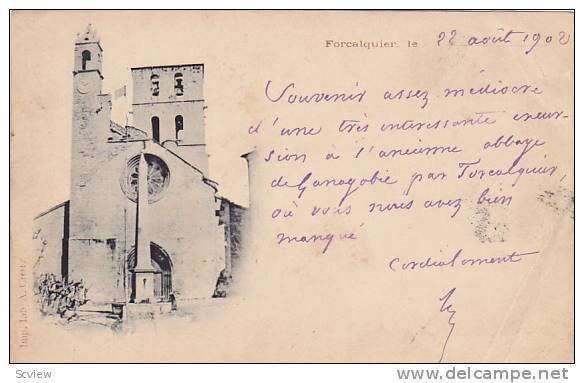 Forcalquier, le 22 août 1902
Souvenir assez médiocre
d'une très intéressante excur-
sion à l'ancienne abbaye
de Ganagobie par Forcalquier,
où vous nous avez bien
manqué
Cordialement
Imp. Lib. A. Crest
Scview
www.delcampe.net